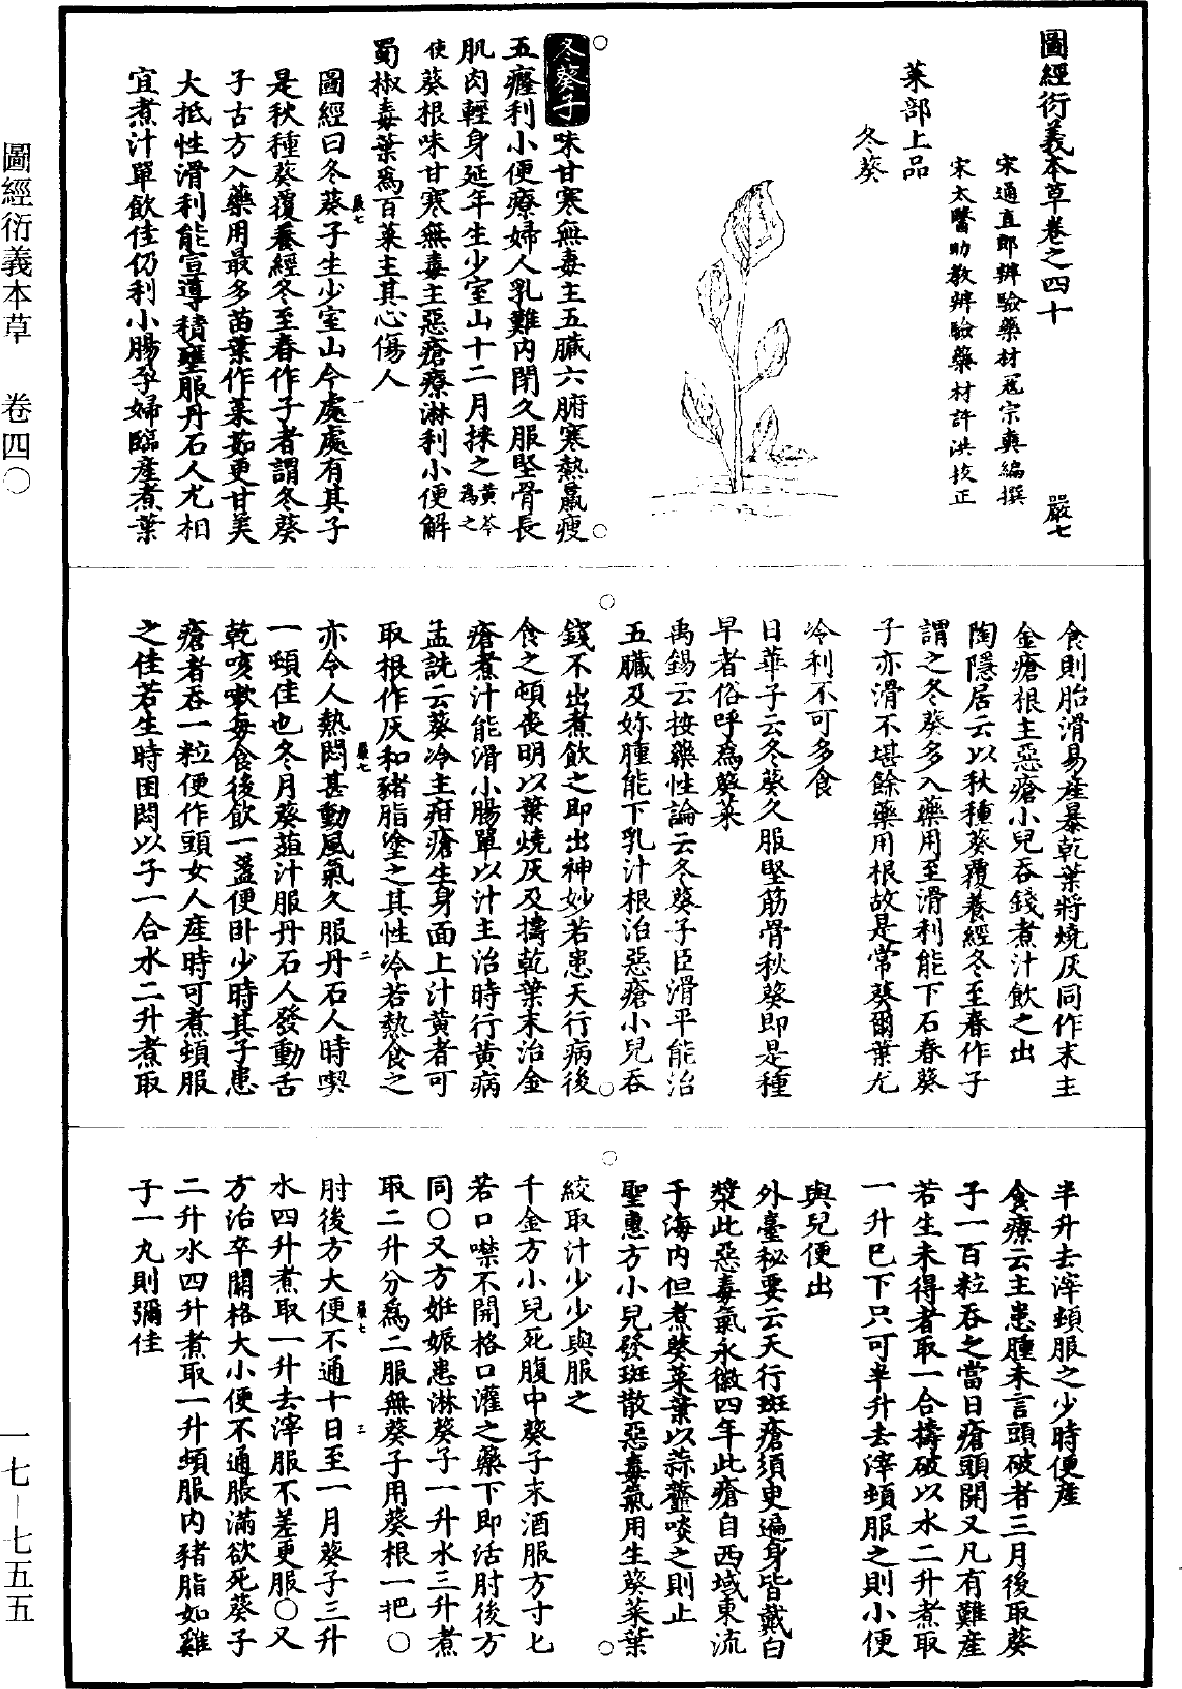 圖經衍義本草卷之四十 嚴七
宋通直郎辨驗藥材寇宗奭編撰
宋太醫助教辨驗藥材許洪校正
菜部上品
冬葵
冬葵子味甘寒無毒主五臟六腑寒熱羸瘦
五癃利小便療婦人乳難內閉久服堅骨長
肌肉輕身延年生少室山十二月採之黃芩為之
使葵根味甘寒無毒主惡瘡療淋利小便解
蜀椒毒葉為百菜主其心傷人
圖經曰冬葵子生少室山今處處有其子
是秋種葵覆養經冬至春作子者謂冬葵
子古方入藥用最多苗葉作菜茹更甘美
大抵性滑利能宣導積壅服丹石人尤相
宜煮汁單飲佳仍利小腸孕婦臨產煮葉
食則胎滑易產暴乾葉將燒灰同作末主
金瘡根主惡瘡小兒吞錢煮汁飲之出
陶隱居云以秋種葵覆養經冬至春作子
謂之冬葵多入藥用至滑利能下石春葵
子亦滑不堪餘藥用根故是常葵爾葉尤
冷利不可多食
日華子云冬葵久服堅筋骨秋葵即是種
早者俗呼為葵菜
禹錫云按藥性論云冬葵子臣滑平能治
五臟及妳腫能下乳汁根治惡瘡小兒吞
錢不出煮飲之即出神妙若患天行病後
食之頓喪明以葉燒灰及擣乾葉末治金
瘡煮汁能滑小腸單以汁主治時行黃病
孟詵云葵冷主疳瘡生身面上汁黃者可
取根作灰和豬脂塗之其性冷若熱食之
亦令人熱悶甚動風氣久服丹石人時喫
一頓佳也冬月葵菹汁服丹石人發動舌
乾咳嗽每食後飲一盞便卧少時其子患
瘡者吞一粒便作頭女人產時可煮頓服
之佳若生時困悶以子一合水二升煮取
半升去滓頓服之少時便產
食療云主患腫未言頭破者三月後取葵
子一百粒吞之當日瘡頭開又凡有難產
若生未得者取一合擣破以水二升煮取
一升巳下只可半升去滓頓服之則小便
與兒便出
外臺秘要云天行斑瘡須臾遍身皆戴白
漿此惡毒氣永徽四年此瘡自西域東流
于海內但煮葵菜葉以蒜虀啖之則止
聖惠方小兒發斑散惡毒氣用生葵菜葉
絞取汁少少與服之
千金方小兒死腹中葵子末酒服方寸匕
若口噤不開格口灌之藥下即活肘後方
同○又方姙娠患淋葵子一升水三升煮
取二升分為二服無葵子用葵根一把○
肘後方大便不通十日至一月葵子三升
水四升煮取一升去滓服不差更服○又
方治卒關格大小便不通脹滿欲死葵子
二升水四升煮取一升頓服內豬脂如雞
子一丸則彌佳
圖經衍義本草 卷四○
一七－七五五